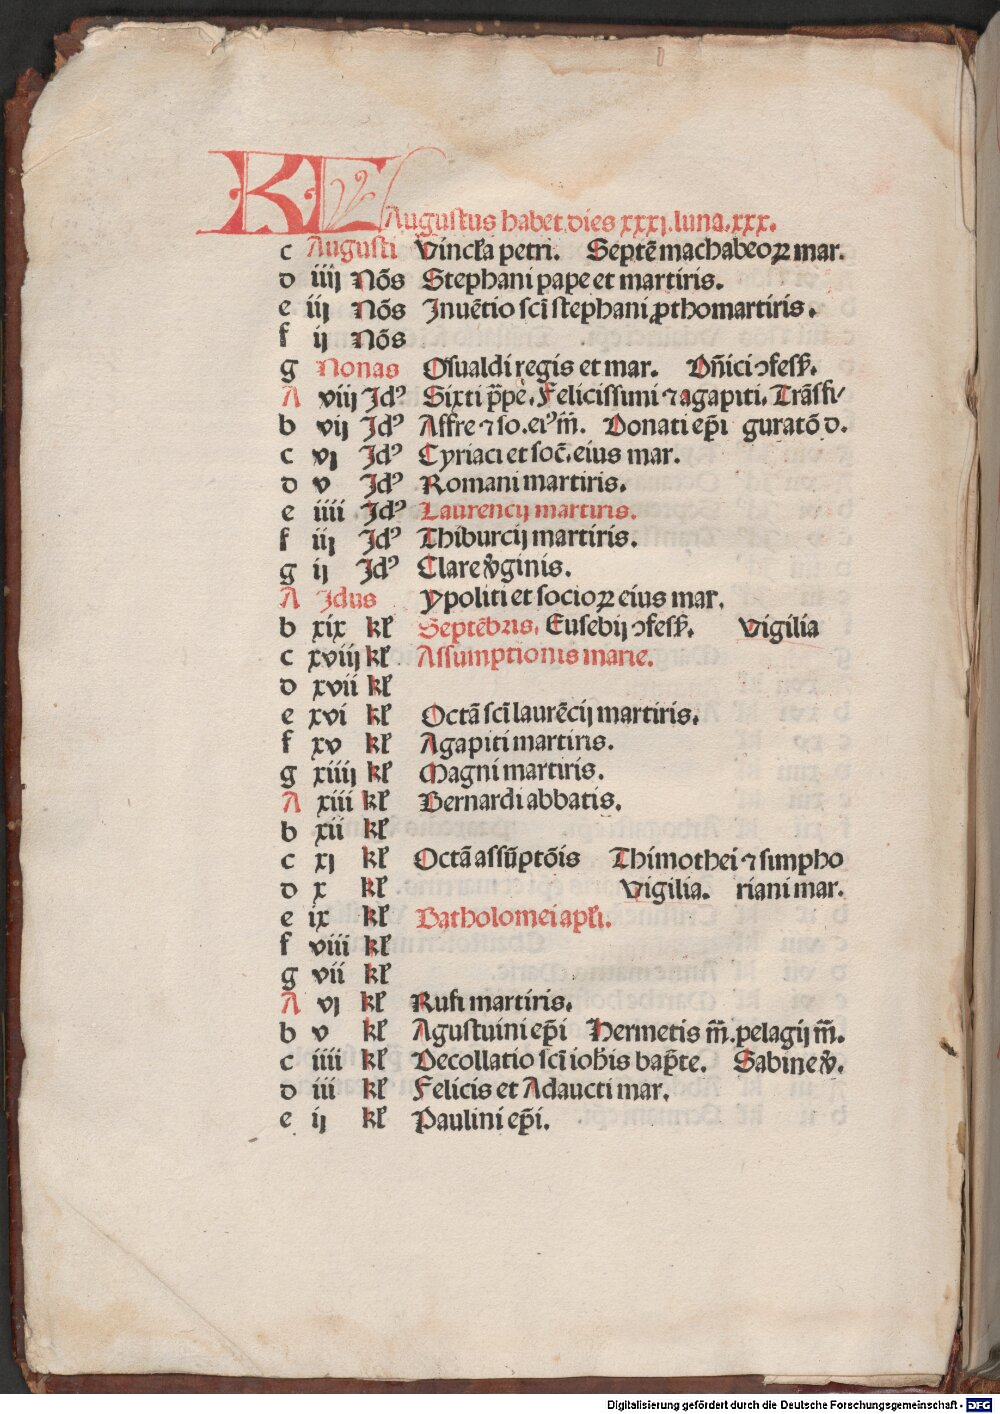 KL Augustus habet dies xxxj. luna. xxx.
c Augusti Vincl'a petri. Septē machabeoꝝ mar.
d iiij Nōs Stephani pape et martiris.
e iij Nōs Inuētio scī stephani ꝓthomartiris.
f ij Nōs
g Nonas Osualdi regis et mar. Dn̄ici ↄfess̄.
A viij Idꝰ Sixti p̄pe. Felicissimi ⁊ agapiti. Trāsfi/
b vij Idꝰ Affre ⁊ so. eiꝰ m̄. Donati ep̄i guratō d.
c vj Idꝰ Cyriaci et soc̄. eius mar.
d v Idꝰ Romani martiris.
e iiii Idꝰ Laurencij martiris.
f iij Idꝰ Thiburcij martiris.
g ij Idꝰ Clare v̄ginis.
A Idus Ypoliti et socioꝝ eius mar.
b xix kl' Septēbris. Eusebij ↄfess̄. Vigilia
c xviij kl' Assumptionis marie.
d xvii kl'
e xvi kl' Octā scī laurēcij martiris.
f xv kl' Agapiti martiris.
g xiiij kl' Magni martiris.
A xiii kl' Bernardi abbatis.
b xii kl'
c xj kl' Octā assūptōis Thimothei ⁊ simpho
d x kl' Vigilia. riani mar.
e ix kl' Batholomei apl'i.
f viii kl'
g vii kl'
A vj kl' Rufi martiris.
b v kl' Agustuini ep̄i Hermetis m̄. pelagij m̄.
c iiii kl' Decollatio scī ioh̄is bap̄te. Sabine v̄.
d iii kl' Felicis et Adaucti mar.
e ij kl' Paulini ep̄i.
Digitalisierung gefördert durch die Deutsche Forschungsgemeinschaft - DFG